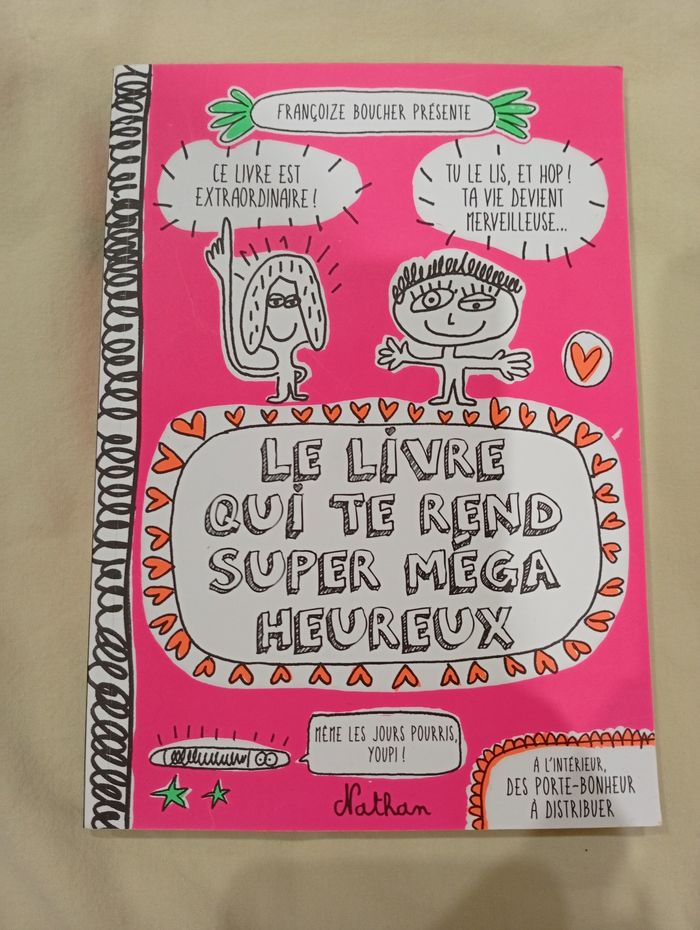 FRANÇOIZE BOUCHER PRÉSENTE
CE LIVRE EST
EXTRAORDINAIRE !
TU LE LIS, ET HOP !
TA VIE DEVIENT
MERVEILLEUSE...
LE LIVRE
QUI TE REND
SUPER MÉGA
HEUREUX
MÊME LES JOURS POURRIS,
YOUPI !
Nathan
A L'INTÉRIEUR,
DES PORTE-BONHEUR
À DISTRIBUER